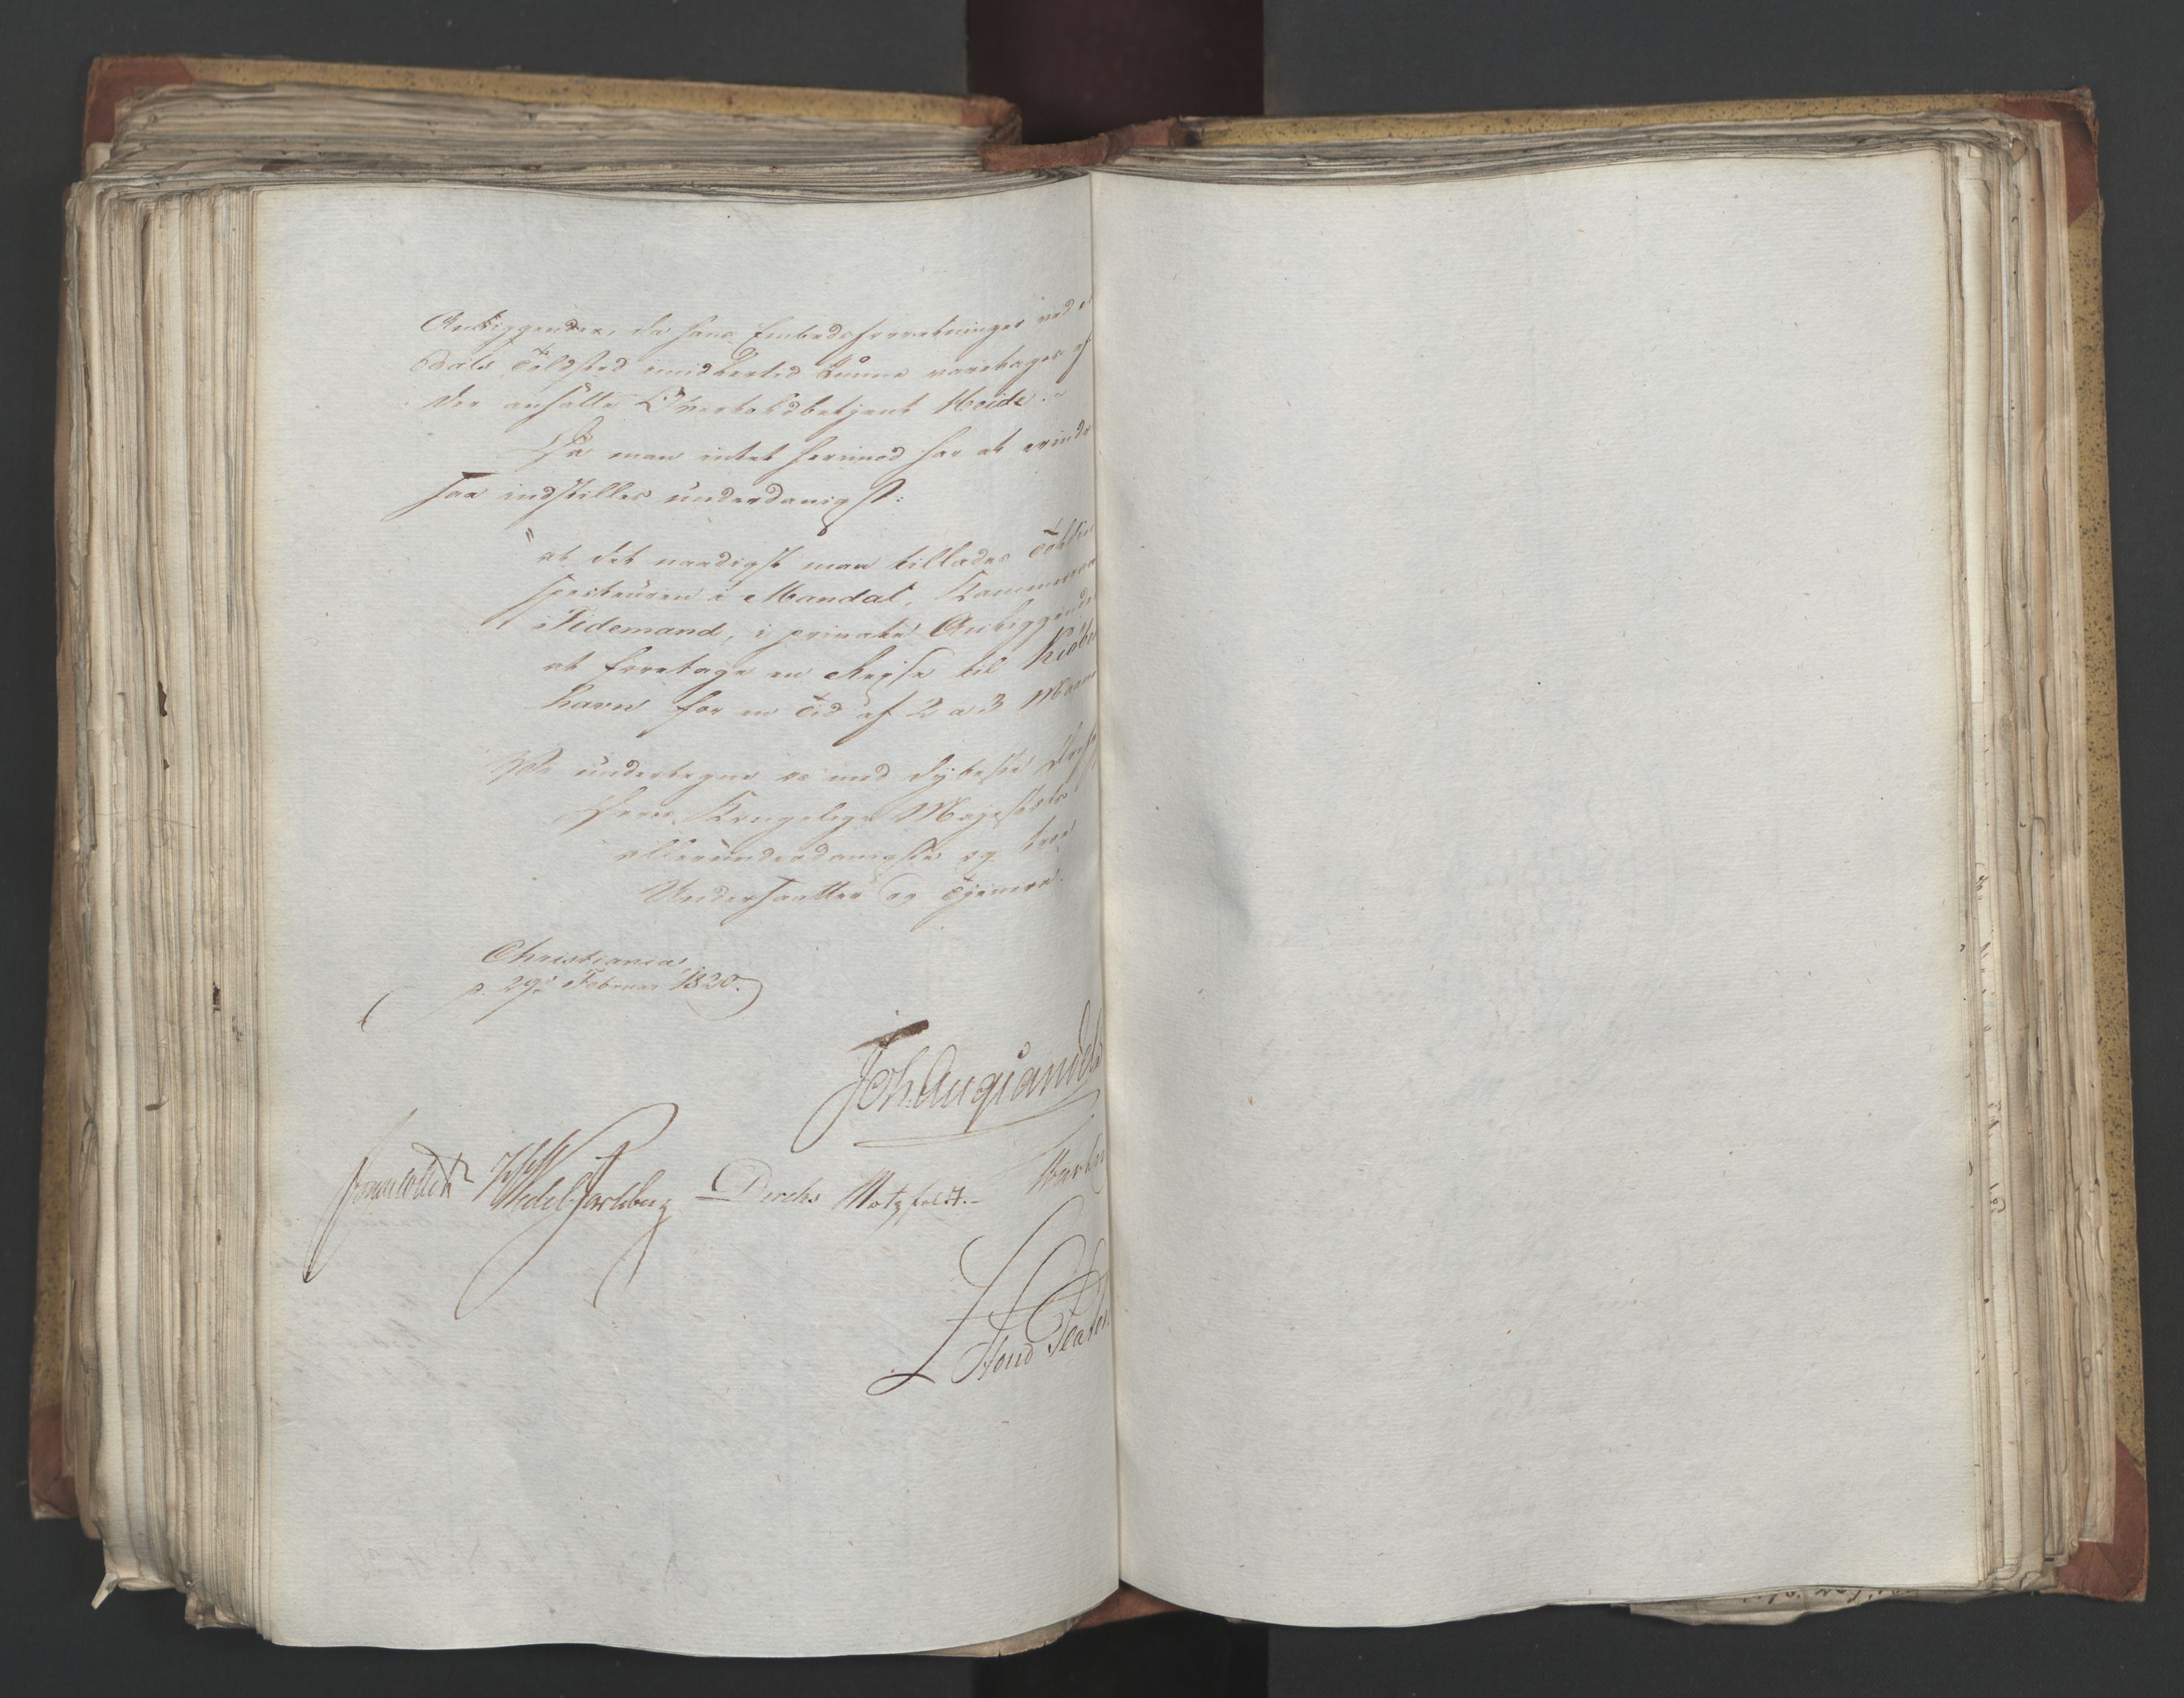 Anliggender, da hans Embedsforretninger ved
Odals Toldsted imidlertid kunne varetages af
der ansatte Overtoldbetjent Heide.
Da man intet herimod har at erindr
saa indstilles underdanigst:
"at det naadigst maa tillades Toldin
specteuren i Mandal, Kammerraa
Tidemand, i private Anliggender
at foretage en Reise til Kiøben
havn for en Tid af 2 a 3 Maane
Vi undertegne os med dybeste
Deres Kongelige Majestæts
allerunderdanigste og troe
Undersaatter og Tjenere.
Christiania,
d. 29de Februar 1820.
Joh. Aug. Sandels
Jonas Collett HWedel Jarlsberg Diriks Motzfeldt.